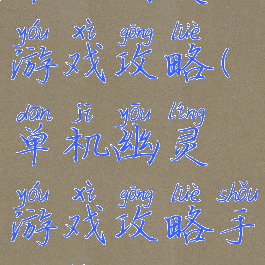 yóu xì gōng lüè
游戏攻略(
dān jī yōu líng
单机幽灵
yóu xì gōng lüè shǒu
游戏攻略手